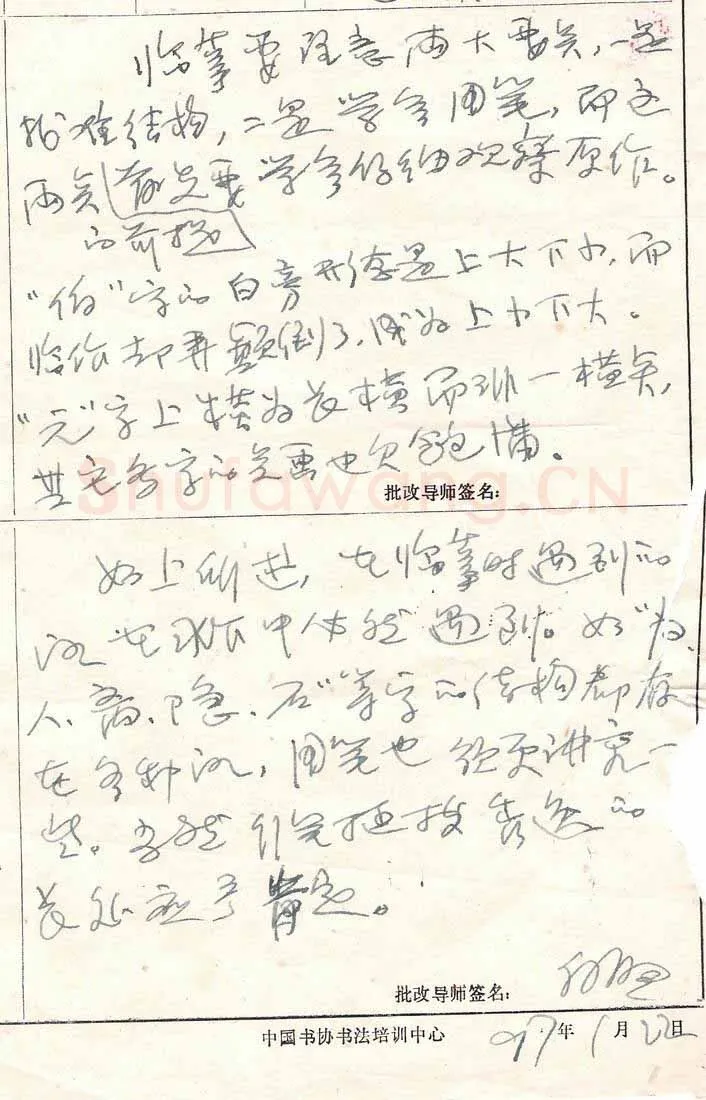 临摹要注意两大要点，一是
抓准结构，二是学会用笔，而这
两点的前提是要学会仔细观察原作。
"伯"字的白旁形态是上大下小，而
临作却弄颠倒了，成为上小下大。
"元"字上横为长横而非一横点，
其它各字的点画也欠饱满。
批改导师签名：
如上所述，在临摹时遇到的
在中仍然遇到。如"归、
人、斋、隐、石"等字的结构都存
在各种，用笔也须更讲究一
些。当然行笔挺拔秀逸的
长处应予肯定。
批改导师签名：
中国书协书法培训中心 97年1月22日
Shufawang.CN